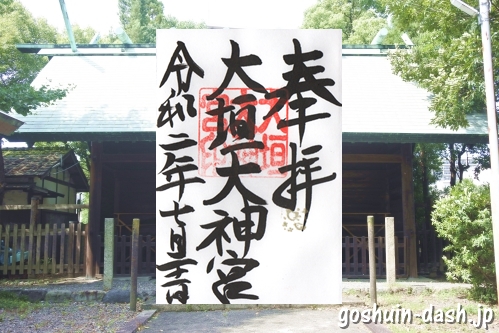 奉拝
大垣大神宮
令和二年七月
goshuin-dash.jp